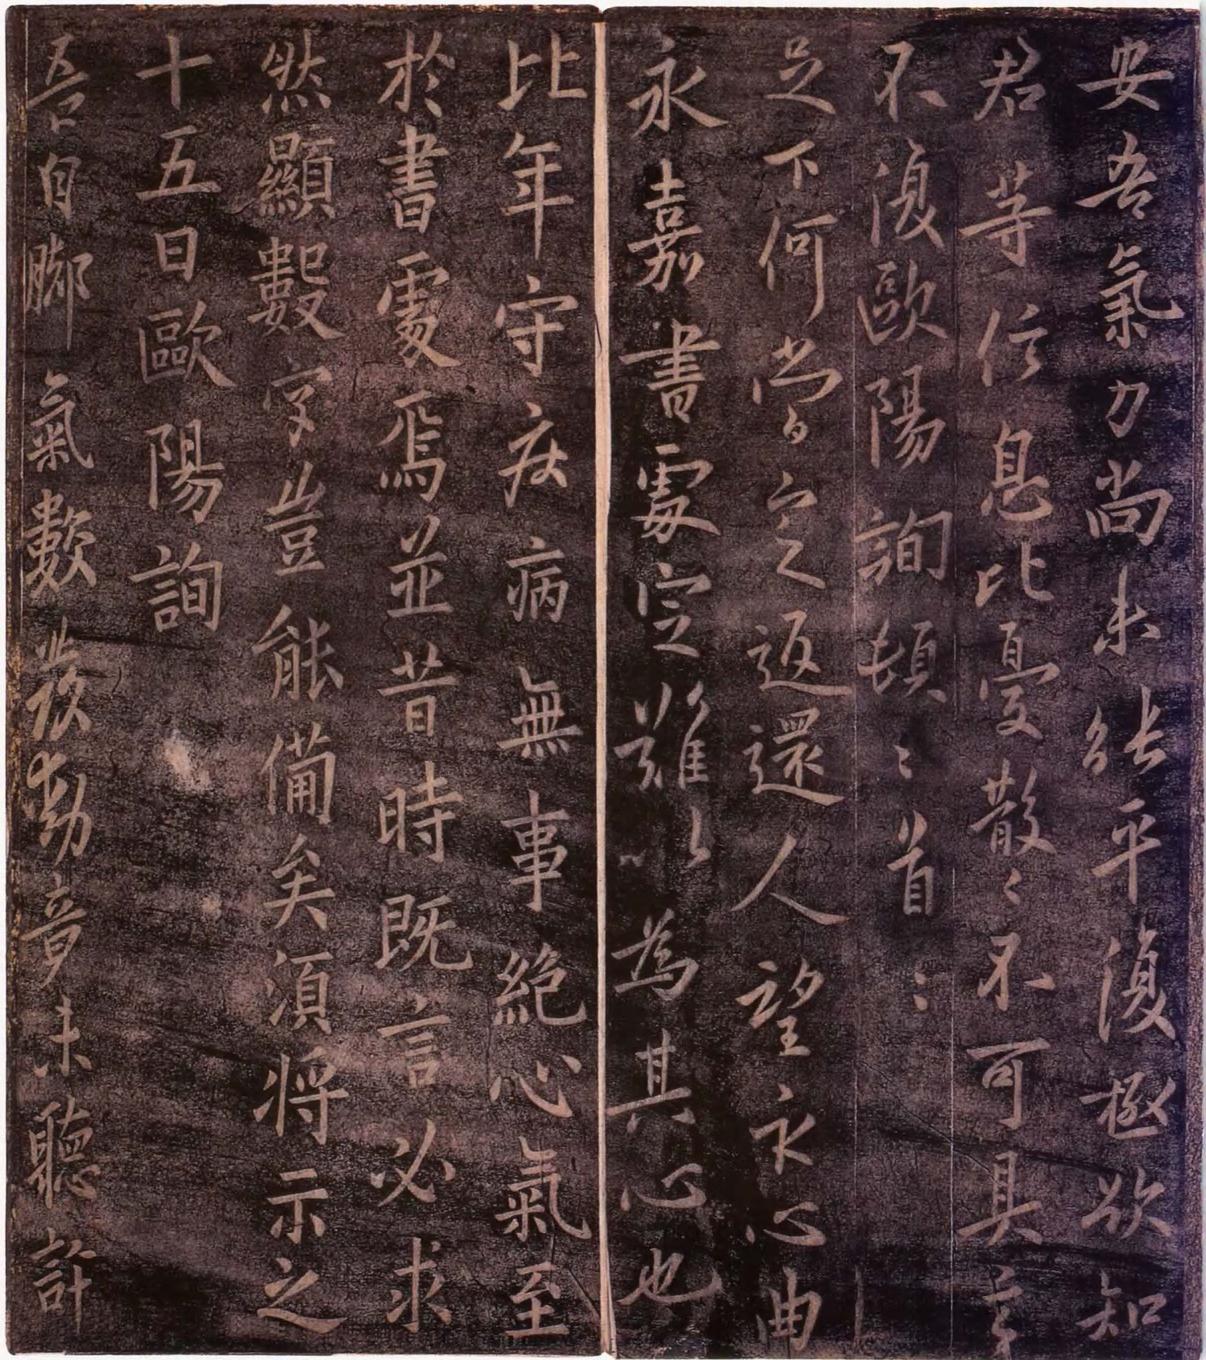 安吾氣力尚未能平復極欲知
君等信息比憂散〻不可具言
不復歐陽詢頓〻首〻
足下何當定返還人望永心曲
永嘉書處定難以為其心也
比年守疾病無事絕心氣至
於書處焉並昔時既言必求
然顯數字豈能備矣須將示之
十五日歐陽詢
吾自腳氣數發動竟未聽許